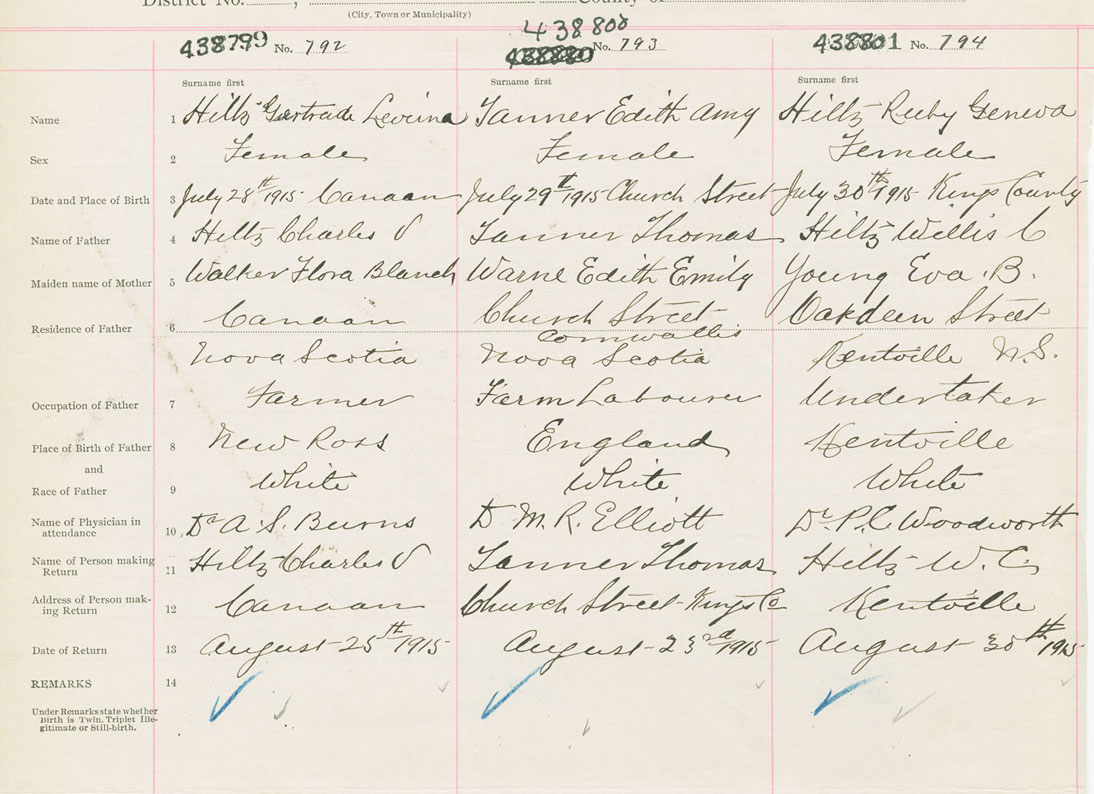 District No. , County of
(City, Town or Municipality)
438799 No. 792 438800 No. 793 438801 No. 794
Surname first Surname first Surname first
Name 1 Hiltz Gertrude Levina Tanner Edith Amy Hiltz Ruby Geneva
Sex 2 Female Female Female
Date and Place of Birth 3 July 28th 1915 Canaan July 29th 1915 Church Street July 30th 1915 Kings County
Name of Father 4 Hiltz Charles V Tanner Thomas Hiltz Willis C
Maiden name of Mother 5 Walker Flora Blanch Warne Edith Emily Young Eva B.
Residence of Father 6 Canaan Church Street Oakdeen Street
Cornwallis
Nova Scotia Nova Scotia Kentville N.S.
Occupation of Father 7 Farmer Farm Labourer Undertaker
Place of Birth of Father 8 New Ross England Kentville
and
Race of Father 9 White White White
Name of Physician in
attendance 10 Dr A. S. Burns D M. R. Elliott Dr. P. C. Woodworth
Name of Person making
Return 11 Hiltz Charles V Tanner Thomas Hiltz W. C.
Address of Person mak-
ing Return 12 Canaan Church Street Kings Co Kentville
Date of Return 13 August 25th 1915 August 23rd 1915 August 30th 1915
REMARKS 14
Under Remarks state whether
Birth is Twin, Triplet Ille-
gitimate or Still-birth.